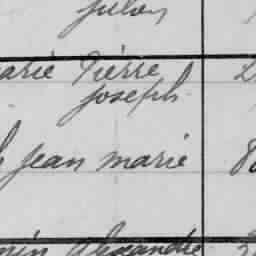 julen
arie Pierre
joseph
h jean marie
min alexandre